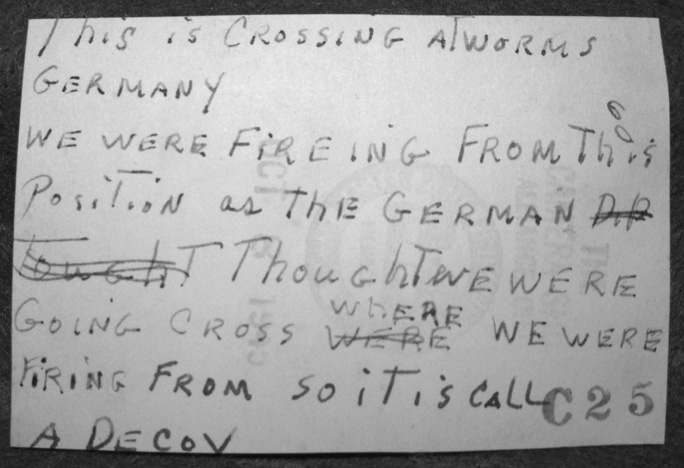 This is CROSSING AT WORMS
GERMANY
WE WERE FIREING FROM This
Position as ThE GERMAN
ThoughT WE WERE
GOING CROSS WhERE WE WERE
FIRING FROM SO iT is CALL
A DECOY
C25